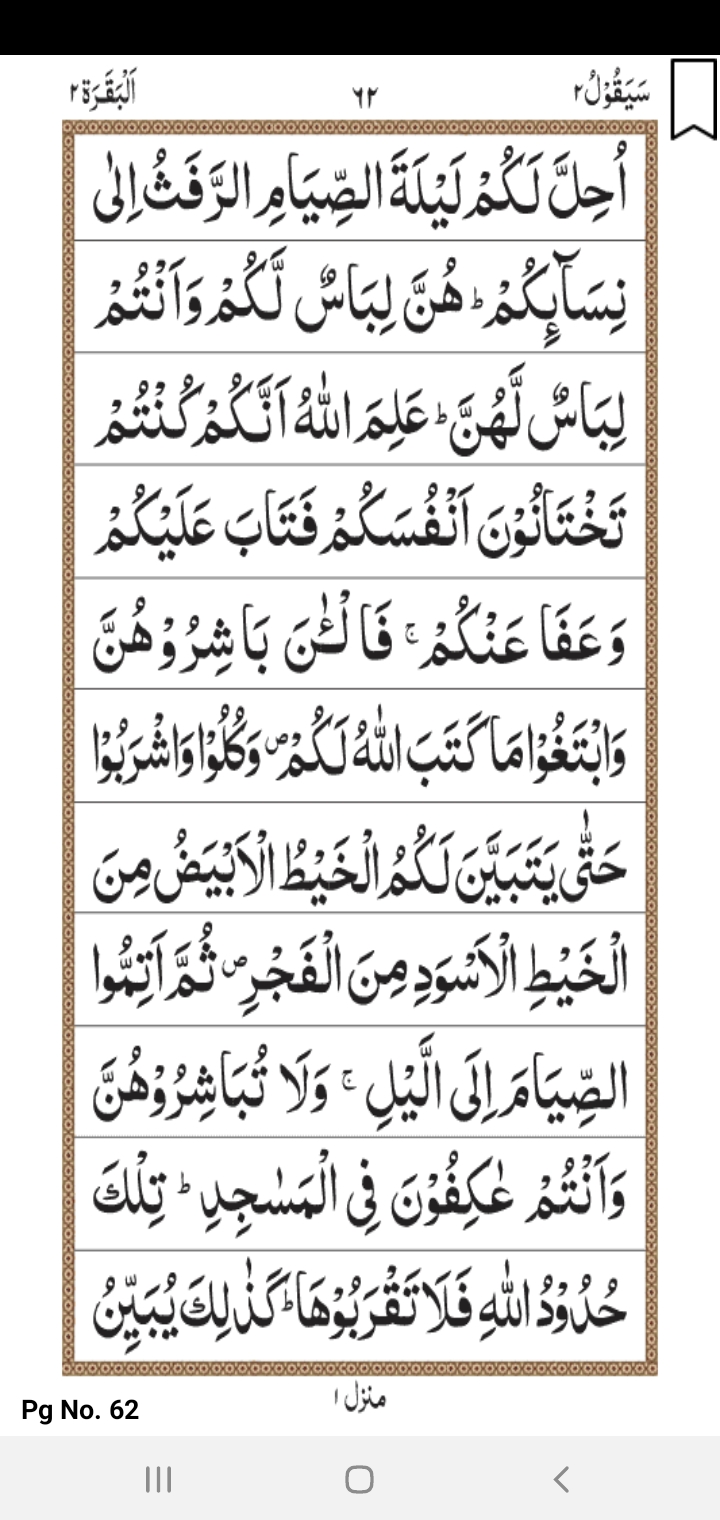 سَيَقُوْلُ٢ ٦٢ اَلْبَقَرَة٢
اُحِلَّ لَكُمْ لَيْلَةَ الصِّيَامِ الرَّفَثُ اِلٰى
نِسَآىِٕكُمْ ؕ هُنَّ لِبَاسٌ لَّكُمْ وَاَنْتُمْ
لِبَاسٌ لَّهُنَّ ؕ عَلِمَ اللّٰهُ اَنَّكُمْ كُنْتُمْ
تَخْتَانُوْنَ اَنْفُسَكُمْ فَتَابَ عَلَيْكُمْ
وَعَفَا عَنْكُمْ ۚ فَالْـٰٔنَ بَاشِرُوْهُنَّ
وَابْتَغُوْا مَا كَتَبَ اللّٰهُ لَكُمْ ۪ وَكُلُوْا وَاشْرَبُوْا
حَتّٰى يَتَبَيَّنَ لَكُمُ الْخَيْطُ الْاَبْيَضُ مِنَ
الْخَيْطِ الْاَسْوَدِ مِنَ الْفَجْرِ ۪ ثُمَّ اَتِمُّوا
الصِّيَامَ اِلَى الَّيْلِ ۚ وَلَا تُبَاشِرُوْهُنَّ
وَاَنْتُمْ عٰكِفُوْنَ فِى الْمَسٰجِدِ ؕ تِلْكَ
حُدُوْدُ اللّٰهِ فَلَا تَقْرَبُوْهَا ؕ كَذٰلِكَ يُبَيِّنُ
منزل ١
Pg No. 62